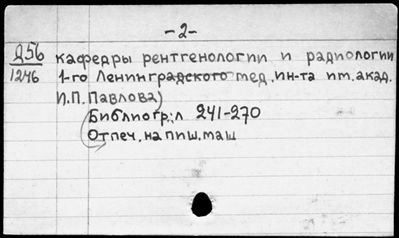 -2-
256 кафедры рентгенологии и радиологии
1246 1-го Ленинградского мед. ин-та им. акад.
И.П. Павлова)
Библиогр.: л 241-270
Отпеч. на пиш. маш